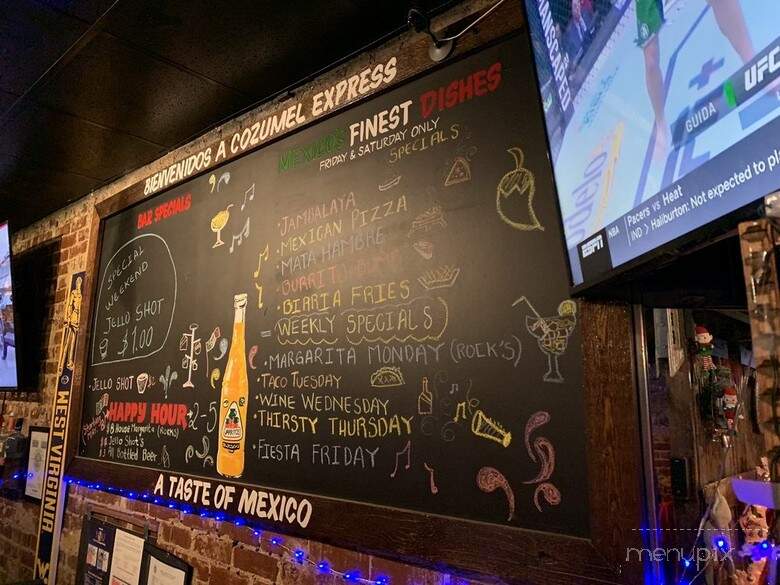 BIENVENIDOS A COZUMEL EXPRESS
MEXICO'S FINEST DISHES
FRIDAY & SATURDAY ONLY
SPECIALS
· JAMBALAYA
· MEXICAN PIZZA
· MATA HAMBRE
· BIRRIA FRIES
WEEKLY SPECIALS
· MARGARITA MONDAY (ROCK'S)
· TACO TUESDAY
· WINE WEDNESDAY
· THIRSTY THURSDAY
· FIESTA FRIDAY
BAR SPECIALS
SPECIAL
WEEKEND
JELLO SHOT
$1.00
· JELLO SHOT
HAPPY HOUR 2-5
House Margarita (Rocks)
Jello Shot's
All Bottled Beer
JARRITOS
A TASTE OF MEXICO
WEST VIRGINIA
GUIDA
UFC
ESPN
NBA
Pacers vs Heat
IND > Haliburton: Not expected to pl
menupix